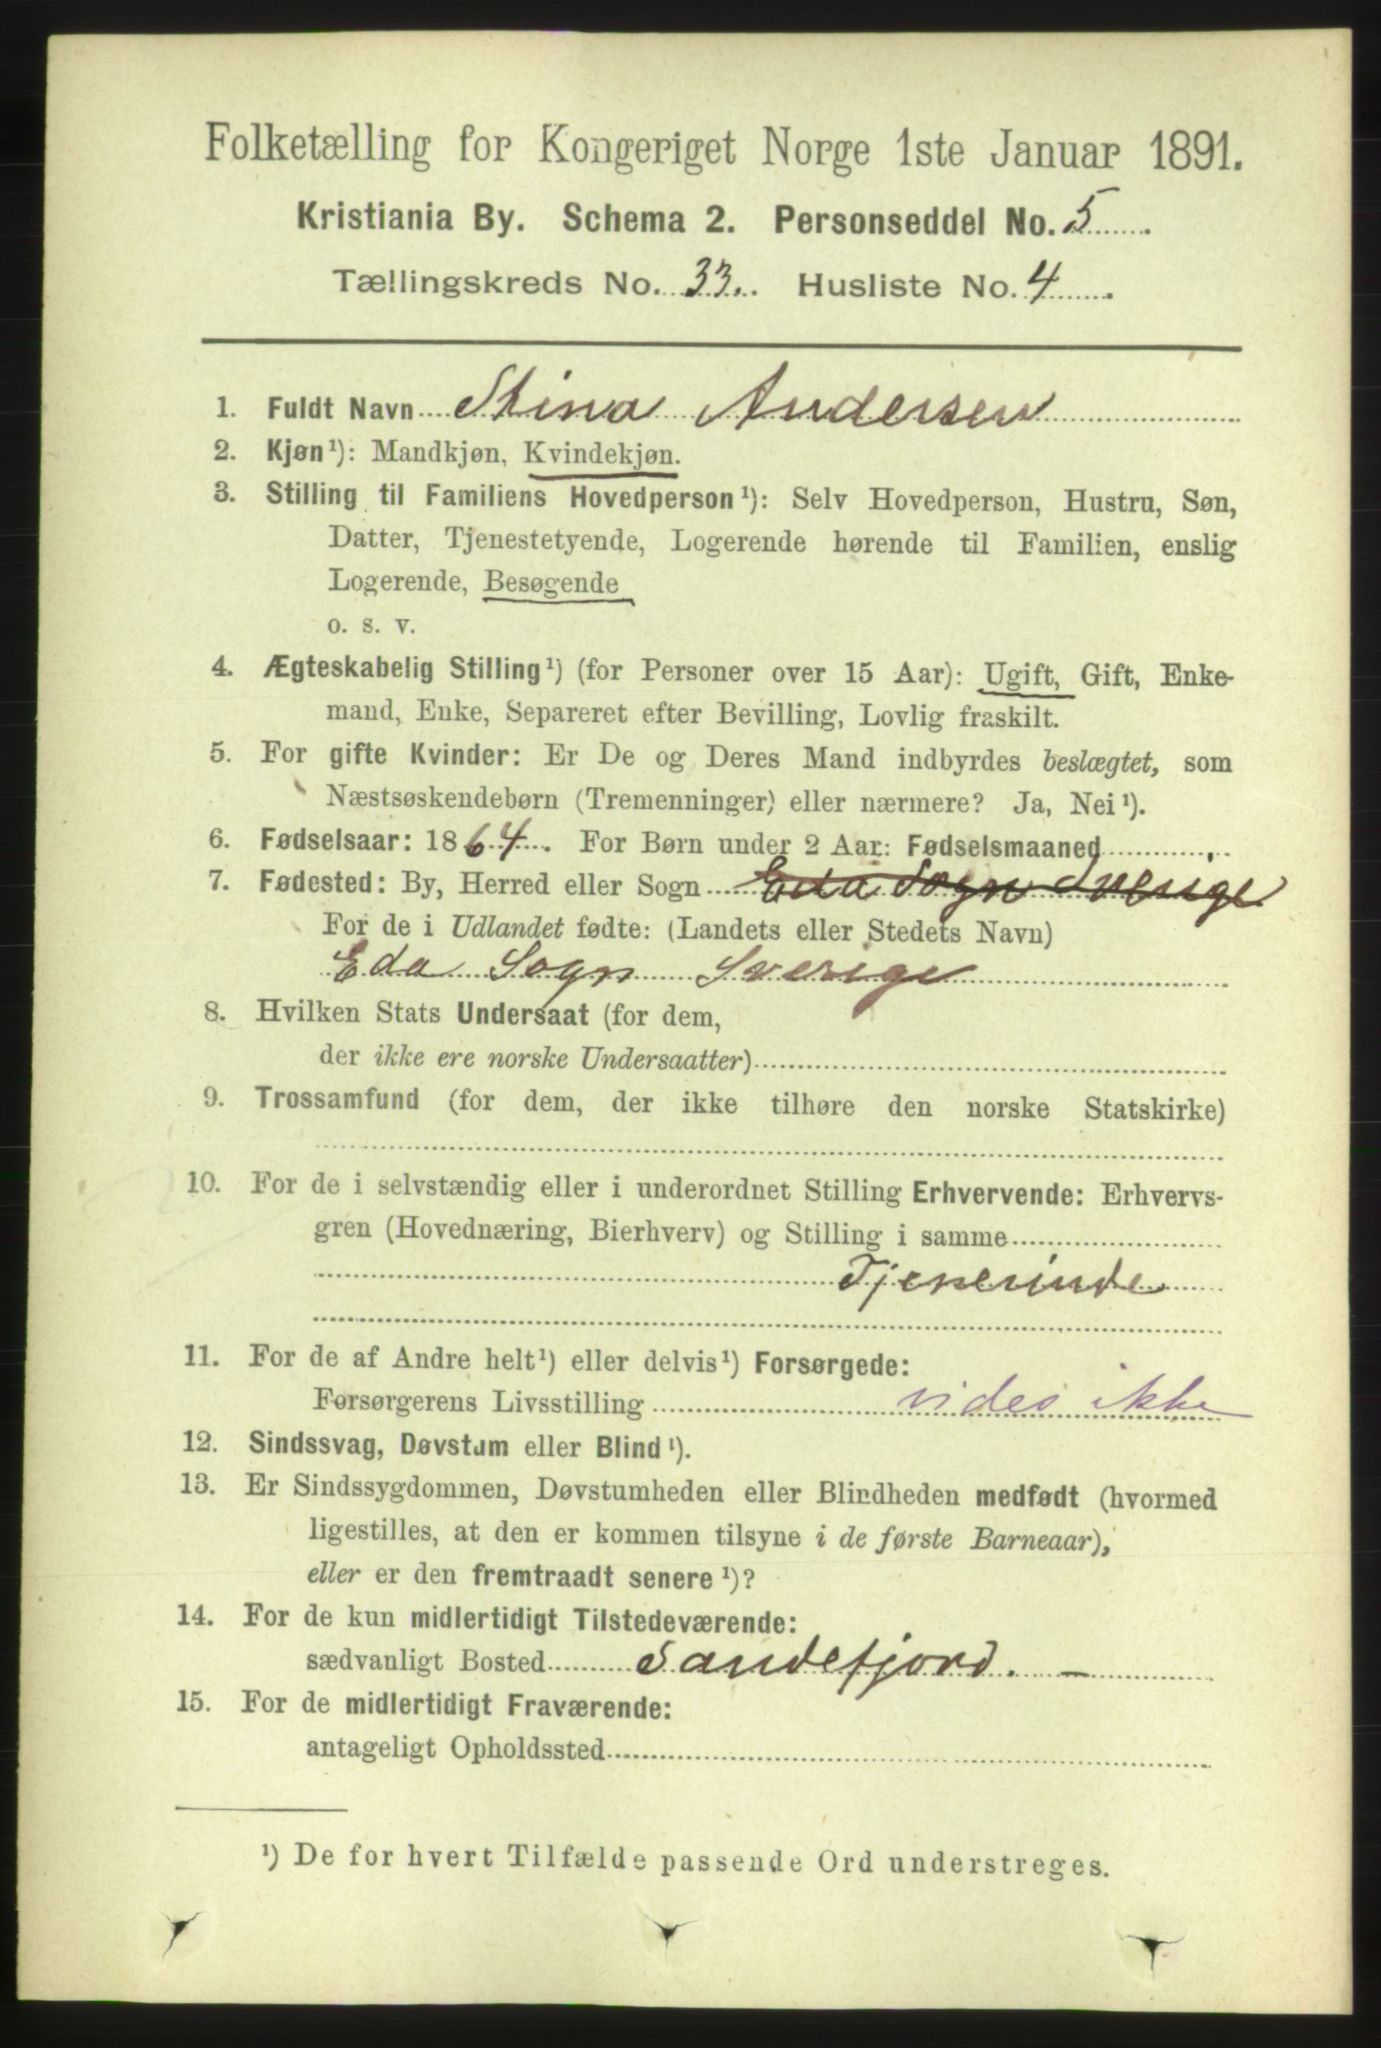 Folketælling for Kongeriget Norge 1ste Januar 1891.
Kristiania By. Schema 2. Personseddel No. 5
Tællingskreds No. 33. Husliste No. 4
1. Fuldt Navn Stina Andersen
2. Kjøn¹): Mandkjøn, Kvindekjøn.
3. Stilling til Familiens Hovedperson¹): Selv Hovedperson, Hustru, Søn,
Datter, Tjenestetyende, Logerende hørende til Familien, enslig
Logerende, Besøgende
o. s. v.
4. Ægteskabelig Stilling¹) (for Personer over 15 Aar): Ugift, Gift, Enke-
mand, Enke, Separeret efter Bevilling, Lovlig fraskilt.
5. For gifte Kvinder: Er De og Deres Mand indbyrdes beslægtet, som
Næstsøskendebørn (Tremenninger) eller nærmere? Ja, Nei¹).
6. Fødselsaar: 1864. For Børn under 2 Aar: Fødselsmaaned
7. Fødested: By, Herred eller Sogn Eda Sogn Sverige
For de i Udlandet fødte: (Landets eller Stedets Navn)
Eda Sogn Sverige
8. Hvilken Stats Undersaat (for dem,
der ikke ere norske Undersaatter)
9. Trossamfund (for dem, der ikke tilhøre den norske Statskirke)
10. For de i selvstændig eller i underordnet Stilling Erhvervende: Erhvervs-
gren (Hovednæring, Bierhverv) og Stilling i samme
Tjenerinde
11. For de af Andre helt¹) eller delvis¹) Forsørgede:
Forsørgerens Livsstilling vides ikke
12. Sindssvag, Døvstum eller Blind¹).
13. Er Sindssygdommen, Døvstumheden eller Blindheden medfødt (hvormed
ligestilles, at den er kommen tilsyne i de første Barneaar),
eller er den fremtraadt senere¹)?
14. For de kun midlertidigt Tilstedeværende:
sædvanligt Bosted Sandefjord. -
15. For de midlertidigt Fraværende:
antageligt Opholdssted
¹) De for hvert Tilfælde passende Ord understreges.